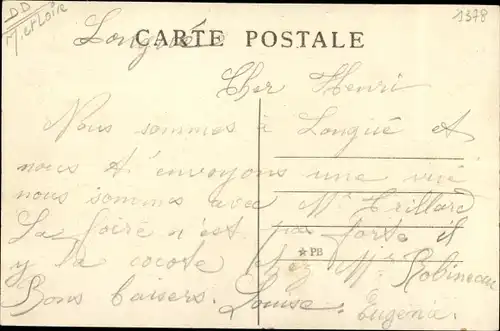 DD
M. et Loire
1378
Longué
CARTE POSTALE
Cher Henri
Nous sommes à Longué et
nous t'envoyons une vue
nous sommes avec Mr Trillard
La foire n'est pas forte il
y la cocote chez Mme Robineau
Bons baisers. Louise. Eugénie.
★PB